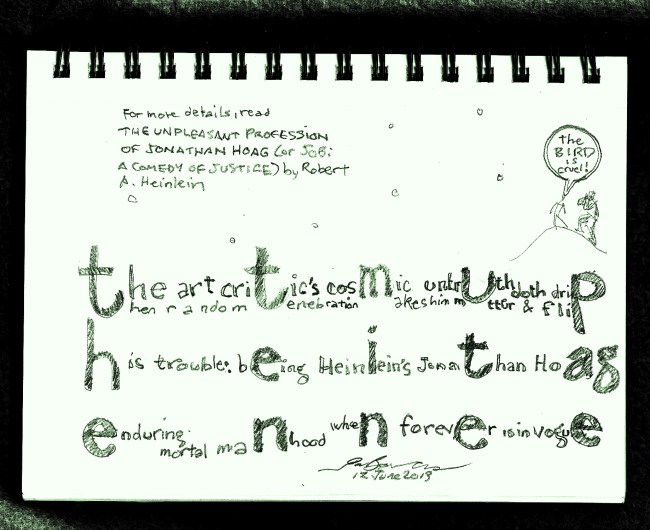 For more details, read
THE UNPLEASANT PROFESSION
OF JONATHAN HOAG (or JOB:
A COMEDY OF JUSTICE) by Robert
A. Heinlein
the
BIRD
is
cruel!
the art critic's cosmic untrUth doth drip
then random cerebration makes him mUttUr & flip
his trouble: being Heinlein's Jonathan Hoag
enduring mortal manhood when forever is in vogue
12 June 2013